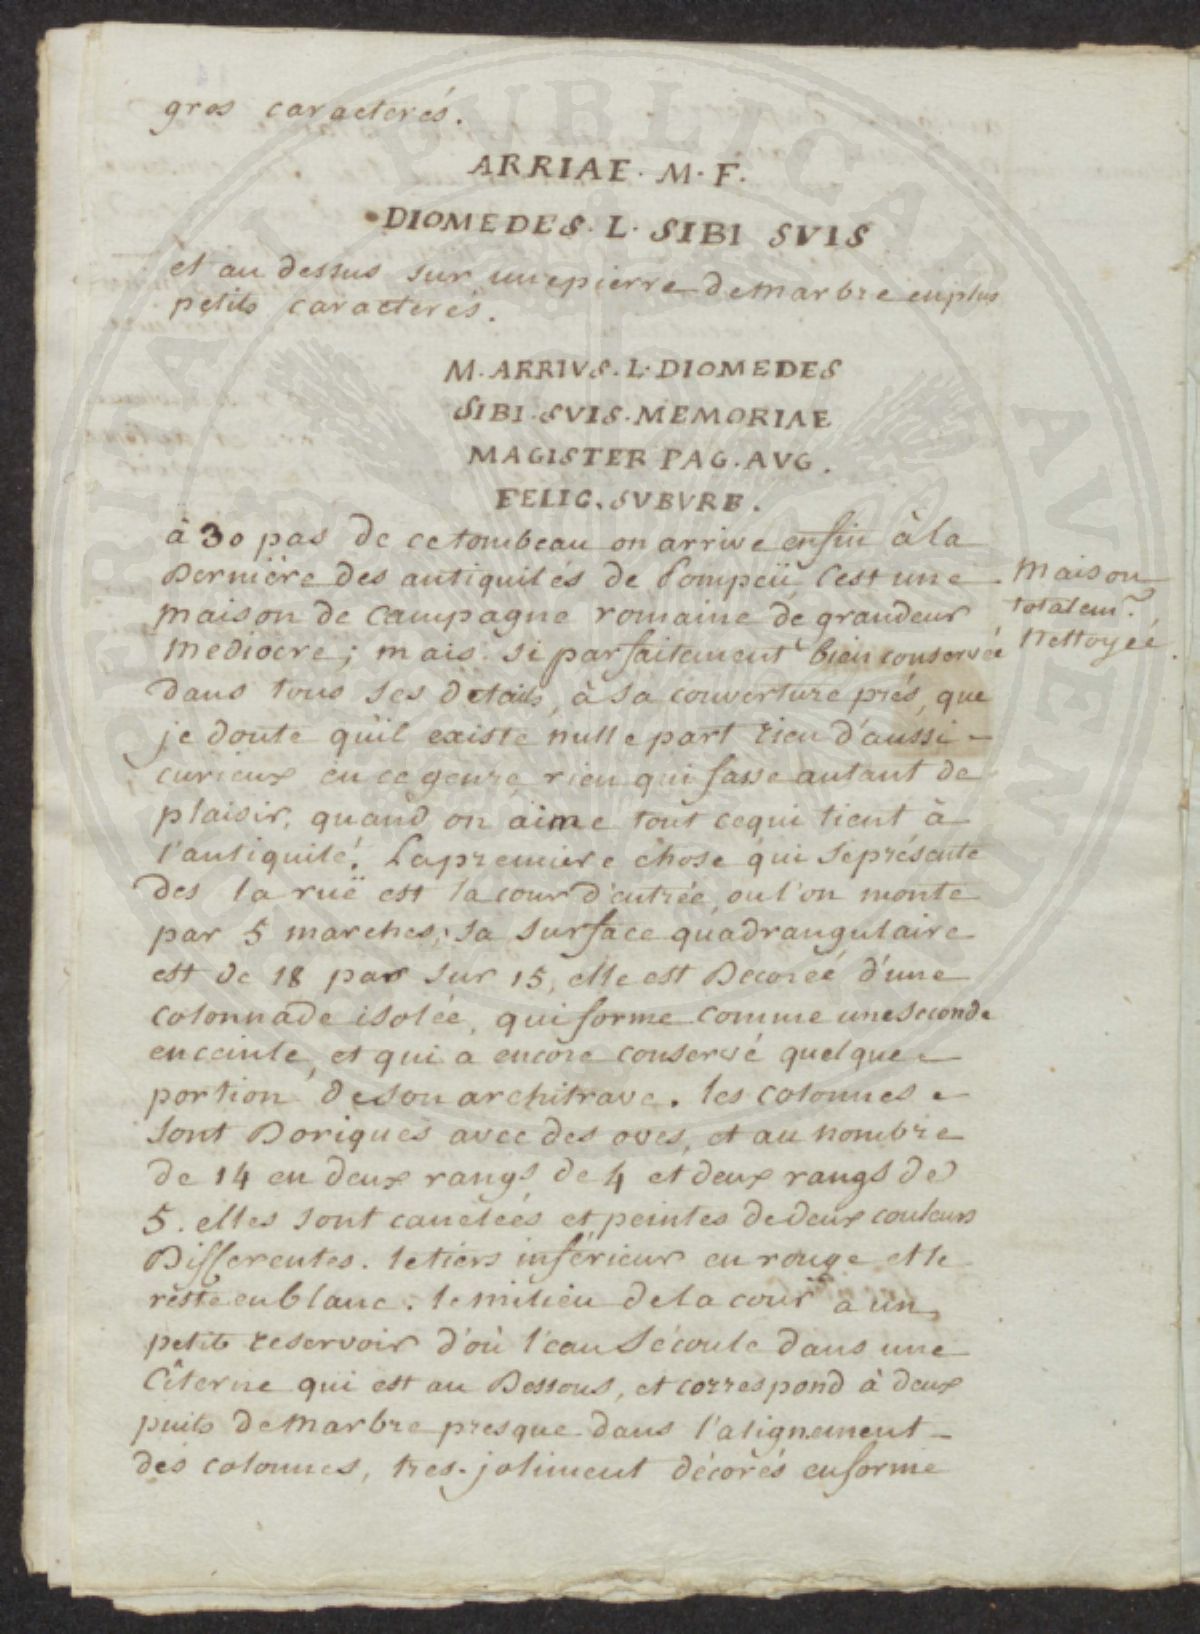 gros caracterés.
ARRIAE. M. F.
DIOMEDES. L. SIBI SVIS
et au dessus sur une pierre de marbre en plus
petits caracterés.
M. ARRIVS. L. DIOMEDES
SIBI. SVIS. MEMORIAE
MAGISTER PAG. AVG.
FELIC. SVBVRB.
à 30 pas de ce tombeau on arrive enfin à la
Derniére des antiquités de Pompeïi, C'est une
maison de campagne romaine de grandeur
mediocre; mais si parfaitement bien conservée
dans tous ses détails, à sa couverture prés, que
je doute qu'il existe nulle part rien d'aussi
curieux en ce genre, rien qui fasse autant de
plaisir, quand on aime tout ce qui tient à
l'antiquité. La premiere chose qui se présente
des la ruë est la cour d'entrée, ou l'on monte
par 5 marches; sa surface quadrangulaire
est de 18 pas sur 15, elle est Decorée d'une
colonnade isolée, qui forme comme une seconde
enceinte, et qui a encore conservé quelque
portion de son architrave. les colonnes
sont Doriques avec des oves, et au nombre
de 14 en deux rangs de 4 et deux rangs de
5. elles sont canelées et peintes de deux couleurs
Differentes. le tiers inférieur en rouge et le
reste en blanc. le milieu de la cour a un
petit reservoir d'où l'eau s'écoule dans une
Cîterne qui est au Dessous, et correspond à deux
puits de marbre presque dans l'alignement
des colonnes, tres-joliment décorés en forme
Maison
totalem.t
Nettoyeé.
PERITAT PUBLICAE AVENDO